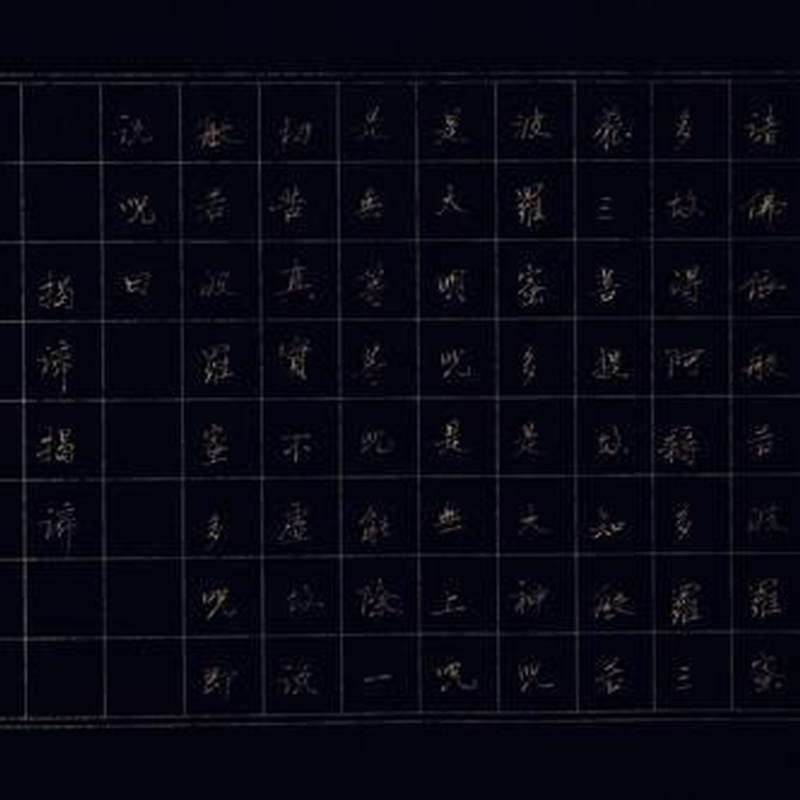 諸佛依般若波羅蜜
多故得阿耨多羅三
藐三菩提故知般若
波羅蜜多是大神呪
是大明呪是無上呪
是無等等呪能除一
切苦真實不虛故說
般若波羅蜜多呪即
說呪曰
揭諦揭諦